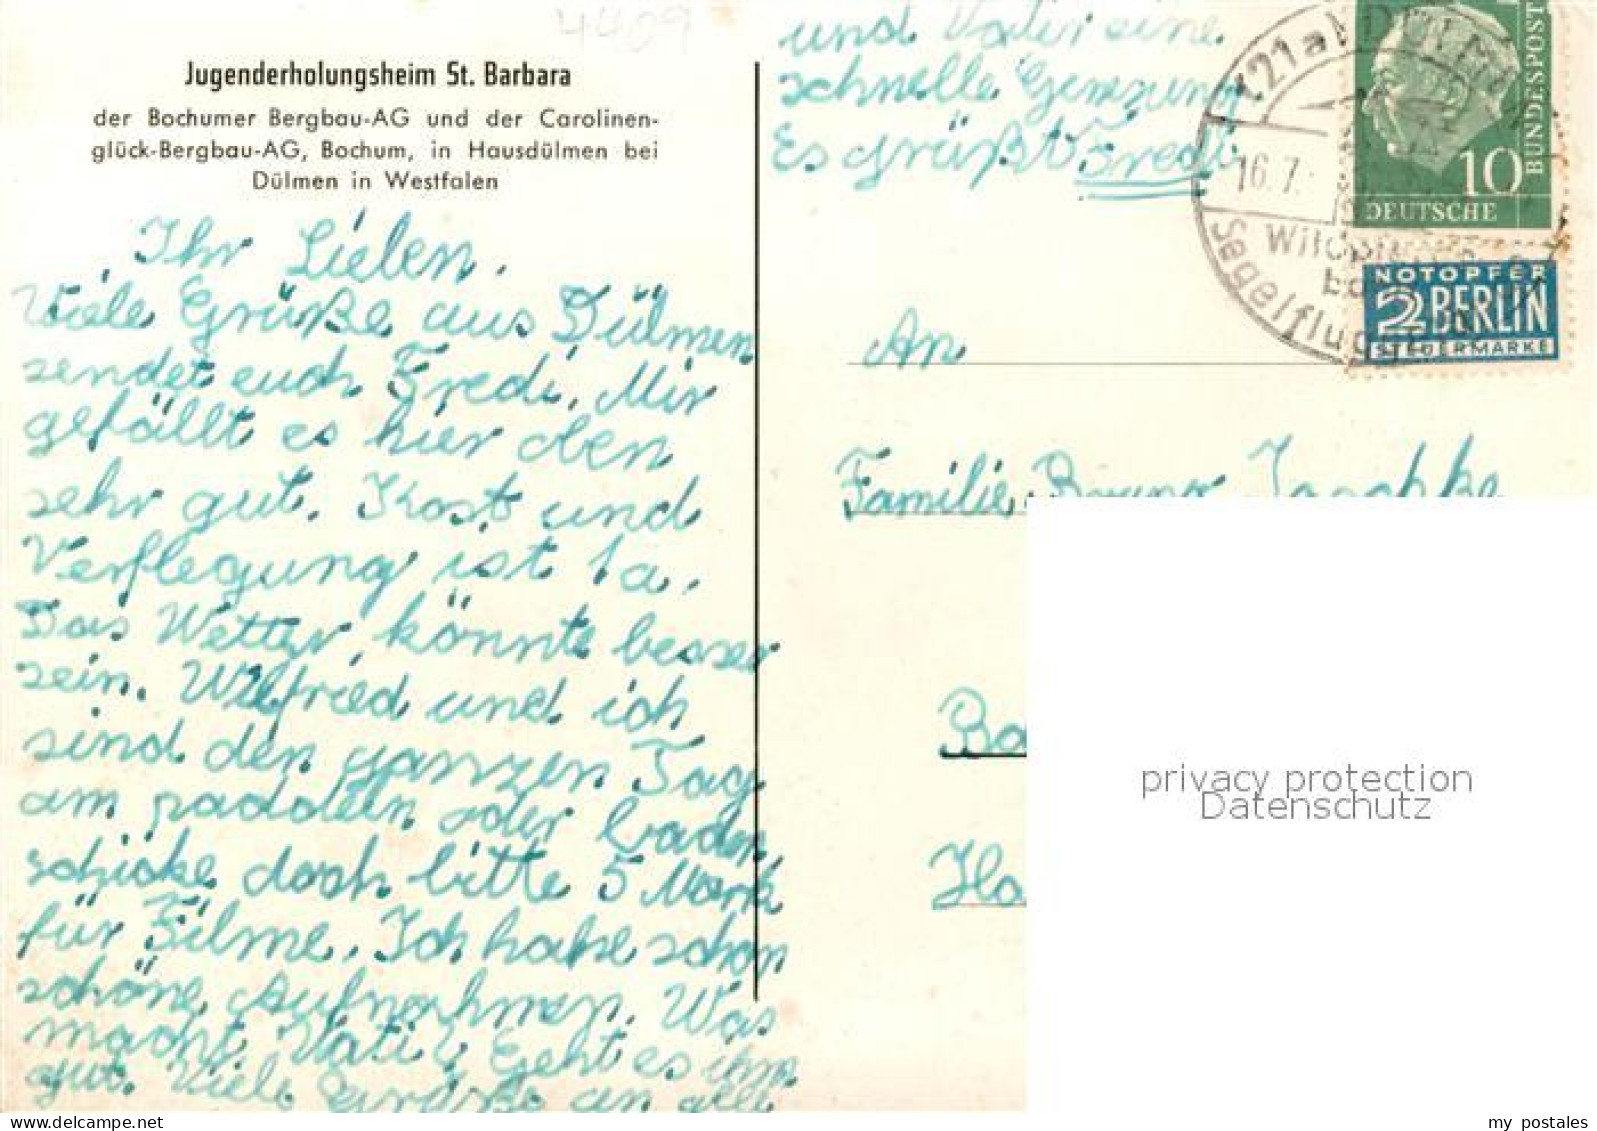 4409
Jugenderholungsheim St. Barbara
der Bochumer Bergbau-AG und der Carolinen-
glück-Bergbau-AG, Bochum, in Hausdülmen bei
Dülmen in Westfalen
Ihr Lieben,
Viele Grüße aus Dülmen
sendet euch Fredi. Mir
gefällt es hier oben
sehr gut. Kost und
Verflegung ist 1a.
Das Wetter könnte besser
sein. Wilfried und ich
sind den ganzen Tag
am paddeln oder baden,
schicke doch bitte 5 Mark
für Filme. Ich habe schon
schöne Aufnahmen. Was
macht Vati? Geht es ihm
gut. Viele Grüße an alle
und Vati eine
schnelle Genesung
Es grüßt Fredi
(21a) DÜLMEN
16.7.
Wildpferde
Segelflug
10
DEUTSCHE
BUNDESPOST
NOTOPFER
2 BERLIN
STEUERMARKE
An
Familie Bruno Jaschke
Bo
Ha
privacy protection
Datenschutz
my postales